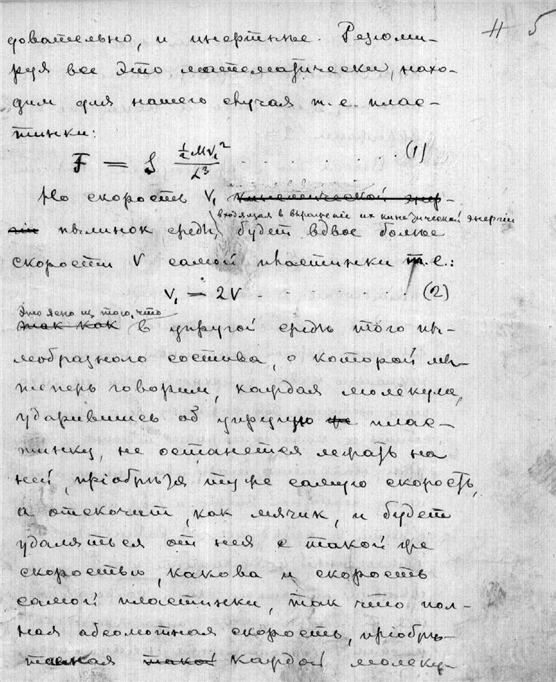 # 5
довательно, и инертные. Резюми-
руя все это математически, нахо-
дим для нашего случая т.е. плас-
тинки:
F = S ½MV₁²/L³ . . . . . . (1)
Но скорость V₁ кинетической энер-
входящая в выражение их кинетической энергии
гіи пылинок среды будет вдвое больше
скорости V самой пластинки т.е.:
V₁ = 2V . . . . . . (2)
Это ясно из того, что
так как в упругой среде того пы-
леобразного состава, о которой мы
теперь говорим, каждая молекула,
ударившись об упругую плас-
тинку, не останется лежать на
ней, пріобрѣтя туже самую скорость,
а отскочит, как мячик, и будет
удаляться от нея с такой же
скоростью, какова и скорость
самой пластинки, так что пол-
ная абсолютная скорость, пріобрѣ-
тенная такой каждой молеку-